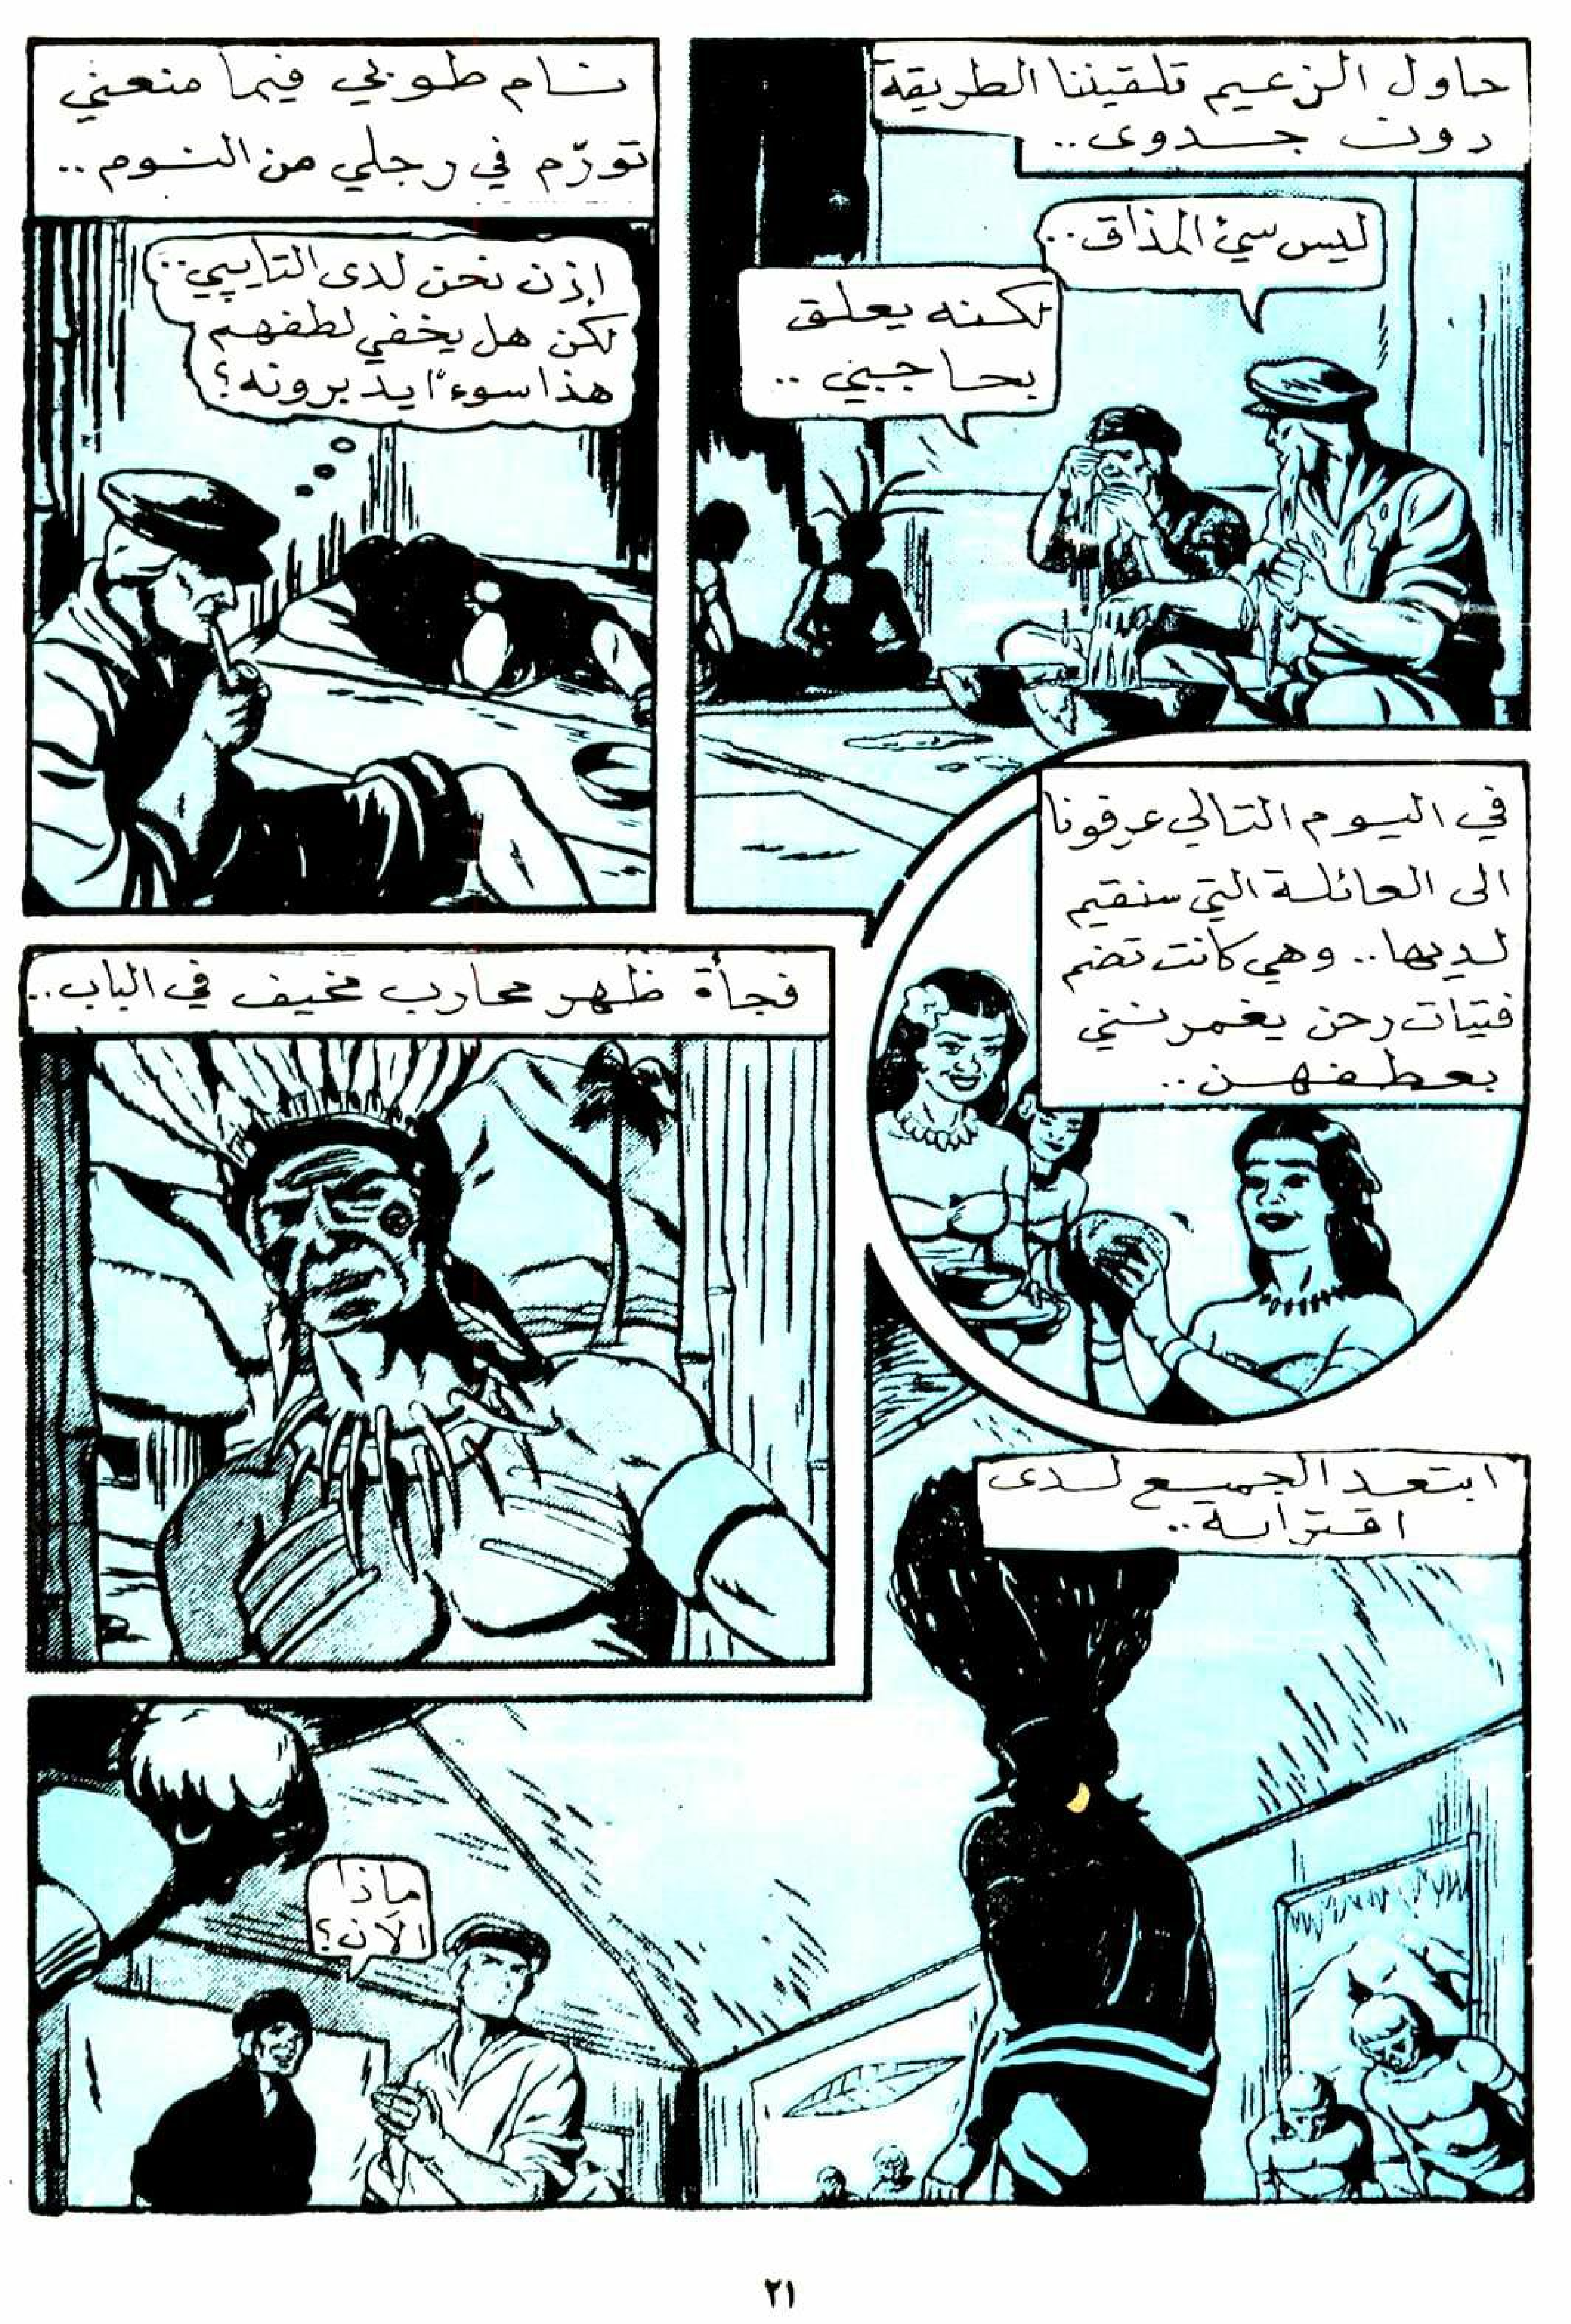 حاول الزعيم تلقيننا الطريقة
دون جدوى..
ليس سيئ المذاق..
لكنه يعلق
بحاجبي..
نام طوبي فيما منعني
تورّم في رجلي من النوم..
إذن نحن لدى التايبي..
لكن هل يخفي لطفهم
هذا سوءًا يدبرونه؟
في اليوم التالي عرفونا
الى العائلة التي سنقيم
لديها.. وهي كانت تضم
فتيات رحن يغمرنني
بعطفهن..
فجأة ظهر محارب مخيف في الباب..
ابتعد الجميع لدى
اقترابه..
ماذا
الآن؟
٢١